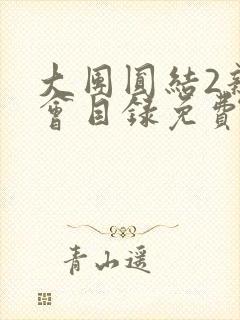 大團圓結2新
會目錄免費
青山遥